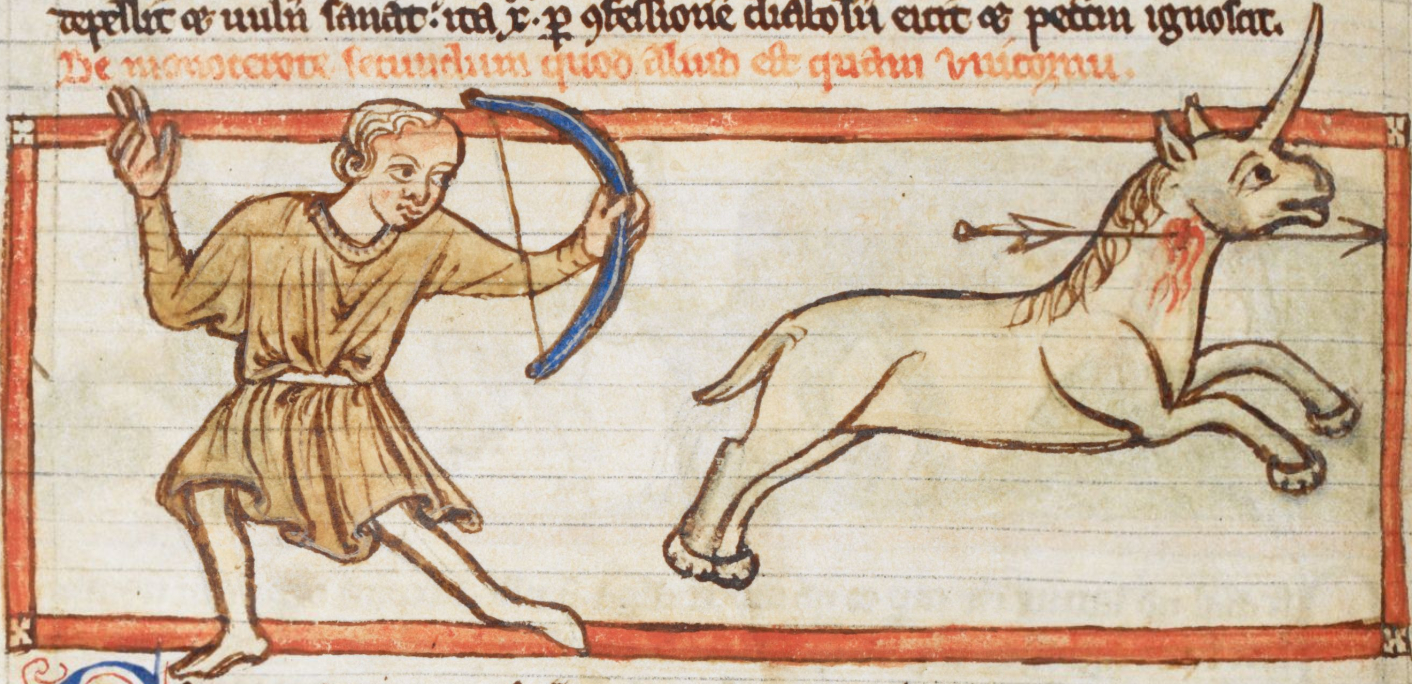 depellit ⁊ uuln̄ sanat: ita x̄. ꝑ ꝯfessionē diabolū eicit ⁊ pectm̄ ignoscit.
De monocerote secundum quod aliud est quam unicornu.